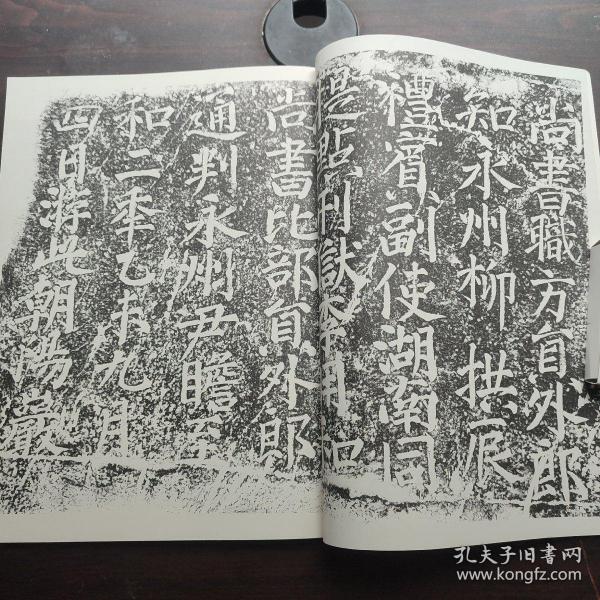 尚書職方貟外郎
知永州柳拱辰
禮賔副使湖南同
提點刑獄李用和
尚書比部貟外郎
通判永州尹瞻至
和二年乙未九月
四日游此朝陽巖
孔夫子旧书网
www.kongfz.com